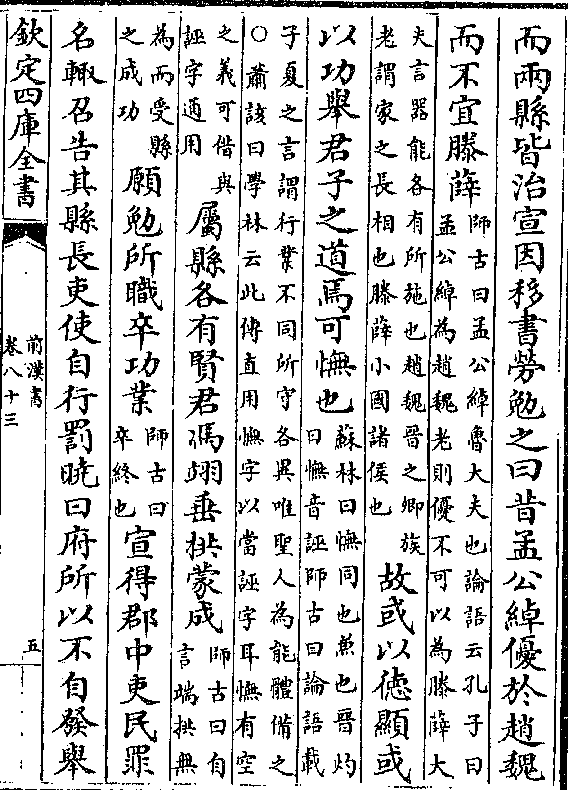 而兩縣皆治宣因移書勞勉之曰昔孟公綽優於趙魏
而不宜滕薛師古曰孟公綽魯大夫也論語云孔子曰
孟公綽為趙魏老則優不可以為滕薛大
夫言器能各有所施也趙魏晉之卿族
老謂家之長相也滕薛小國諸侯也故或以徳顯或
以功舉君子之道焉可憮也蘇林曰憮同也兼也晉灼
曰憮音誣師古曰論語載
子夏之言謂行業不同所守各異唯聖人為能體備之
○蕭該曰學林云此傳直用憮字以當誣字耳憮有空
之義可借與
誣字通用屬縣各有賢君馮翊垂拱蒙成師古曰自
言端拱無
為而受縣
之成功願勉所職卒功業師古曰
卒終也宣得郡中吏民罪
名輙召告其縣長吏使自行罰曉曰府所以不自發舉
欽定四庫全書
前漢書
卷八十三
五